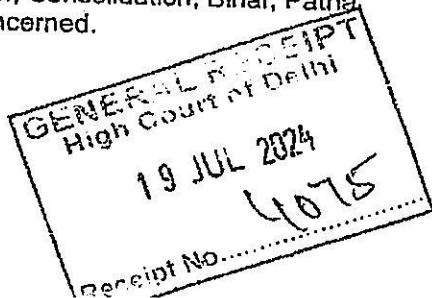 Consolidation, Bihar, Patna,
ncerned.
GENERAL RECEIPT
High Court of Delhi
19 JUL 2024
4075
Receipt No..............